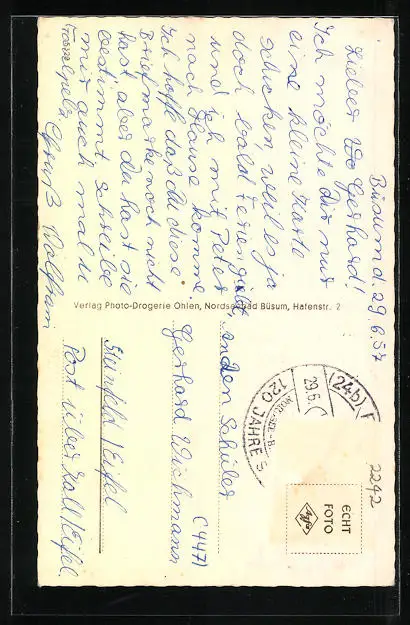 Büsum d. 29.6.57
Lieber Gerhard!
Ich möchte dir nur
eine kleine Karte
schicken, weil es ja
doch bald Ferien gibt,
und ich mit Peter
nach Hause komme.
Ich hoffe daß du diese
Briefmarke noch nicht
hast, aber du hast sie
bestimmt. Schreibe
mir auch mal
Gruß Wolfram
Verlag Photo-Drogerie Ohlen, Nordseebad Büsum, Hafenstr. 2
an den Schüler
Gerhard Wichmann
(4471
/Eifel
Post über Kall/Eifel.
(24b)
29.6.
120 JAHRE
2242
ECHT
FOTO
Agfa